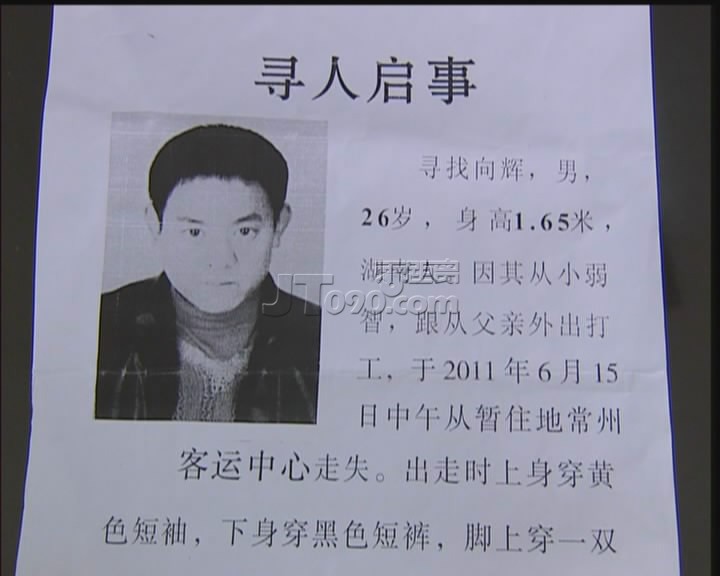 寻人启事
寻找向辉，男，
26岁，身高1.65米，
湖南人。因其从小弱
智，跟从父亲外出打
工，于2011年6月15
日中午从暂住地常州
客运中心走失。出走时上身穿黄
色短袖，下身穿黑色短裤，脚上穿一双
JT090.com